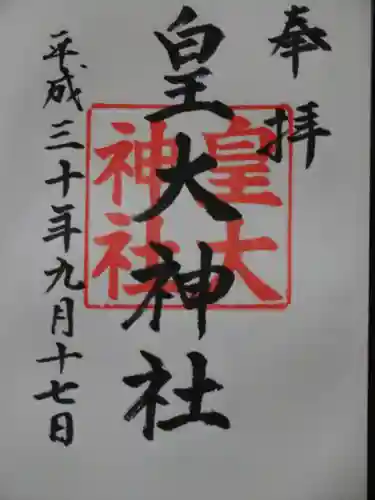 奉拝
皇大神社
皇大
神社
平成三十年九月十七日